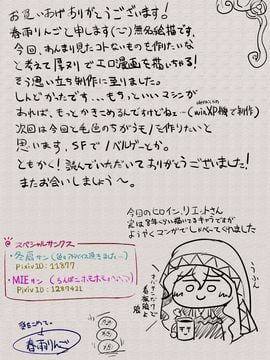 お買いあげありがとうございます!
春雨りんごと申します(~)無名絵描です。
今回、あんまり見たコトないものを作りたいな
と考えて厚ヌリでエロ漫画を描いちゃる!
そう思い立ち制作に至りました。
しんどかったです…もちっといいマシンが
あれば、もっとかきこめるんですけどね~(winXP機で制作)
次回は今回と毛色のちがうモノを作りたいと
思います。SFでノベルゲーとか。
ともかく!読んでいただいてありがとうございました!
またお会いしましょう~。
今回のヒロイン、リエットさん
実は8年くらい描いてるキャラですが
ようやくコンガでしゃべってくれました
@スペシャルサンクス
pixiv ID: 11877
・MIEサン
pixiv ID: 1287421
春雨りんご